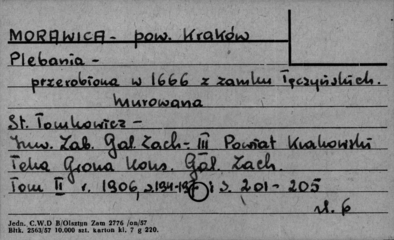 MORAWICA - pow. Kraków
Plebania -
przerobiona w 1666 z zamku Tęczyńskich.
murowana
St. Tomkowicz -
Inw. Zab. Gal. Zach - III Powiat Krakowski
Teka Grona Kons. Gal. Zach.
Tom II r. 1906, s. 194-19 i s. 201-205
il. 6
Jedn. C.W.D B/Olsztyn Zam 2776 /on/57
Bltk. 2563/57 10.000 szt. karton kl. 7 g 220.